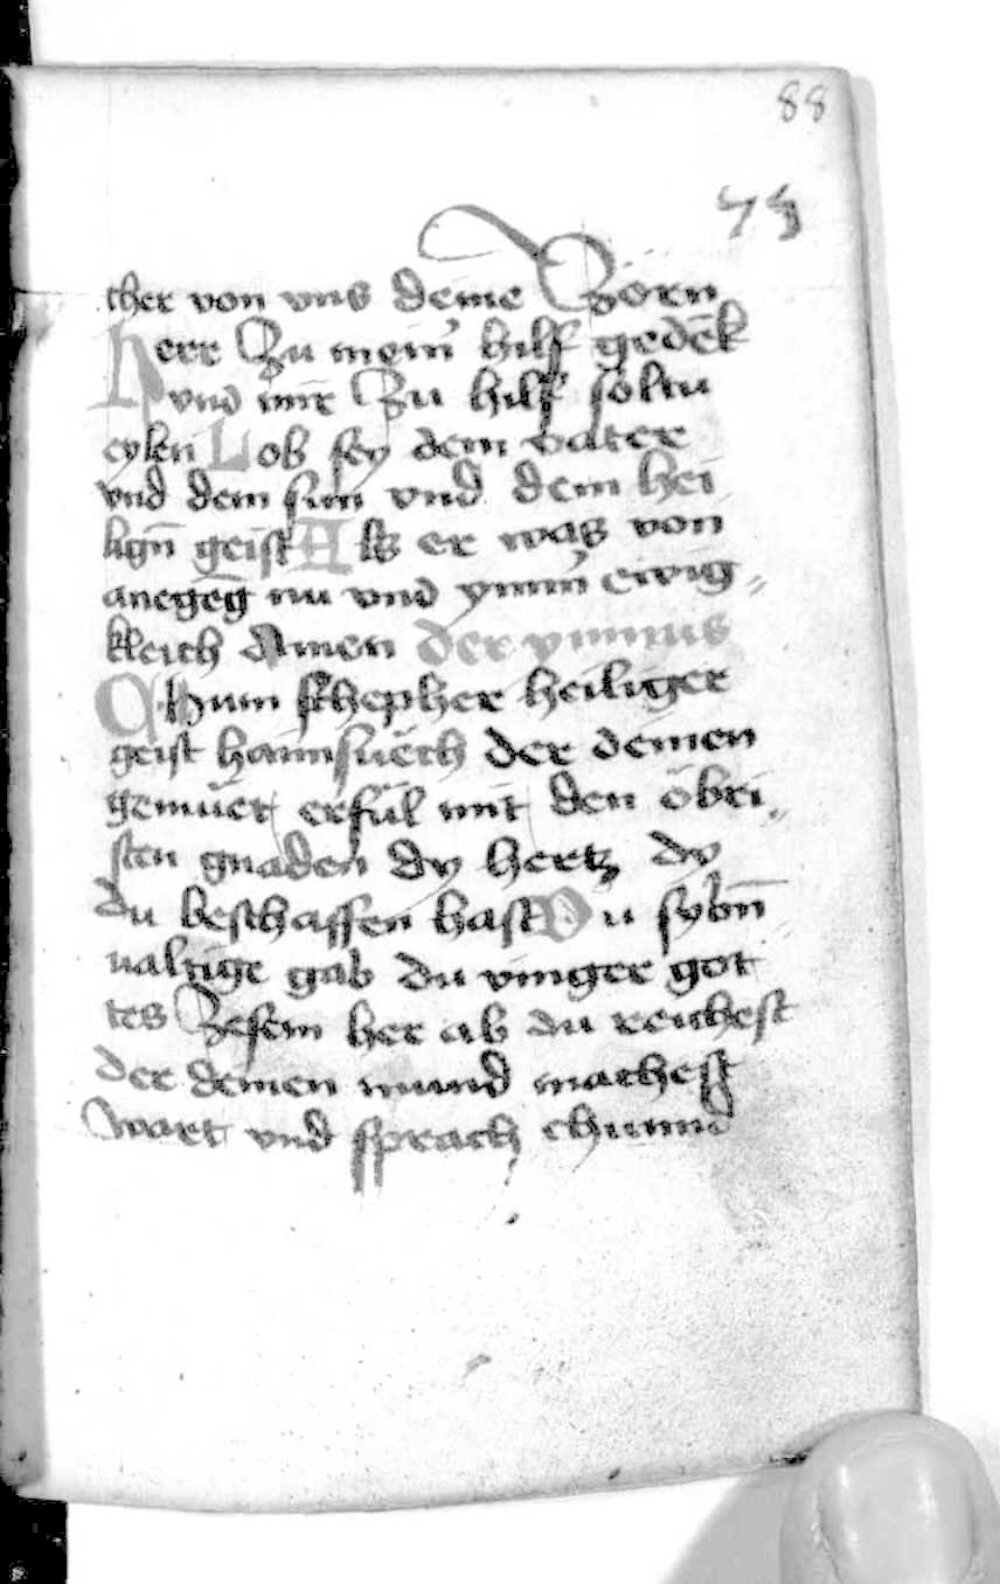 88
75
cher von vns deine Zorn
Herr Zu meiner hilf gedēk
vnd mir Zu hilf soltu
eylen Lob sey dem vater
vnd dem sun vnd dem hei
lign̄ geist Als er was von
anegēg nu vnd ymm̄er ewig„
kleich Amen der ymnus
Chum schepher heiliger
geist haimsuech der deinen
gemüet erfül mit den öbri„
sten gnaden dy hertz dy
du beschaffen hast Du sybn̄
ualtige gab du vinger got
tes Zesem her ab du reichest
der deinen mund machest
wart vnd sprach chumm